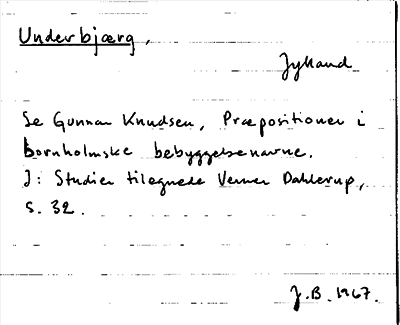 Underbjærg,
Jylland
Se Gunnar Knudsen, Præpositioner i
bornholmske bebyggelsenavne.
I: Studier tilegnede Verner Dahlerup,
s. 32.
J.B. 1967.